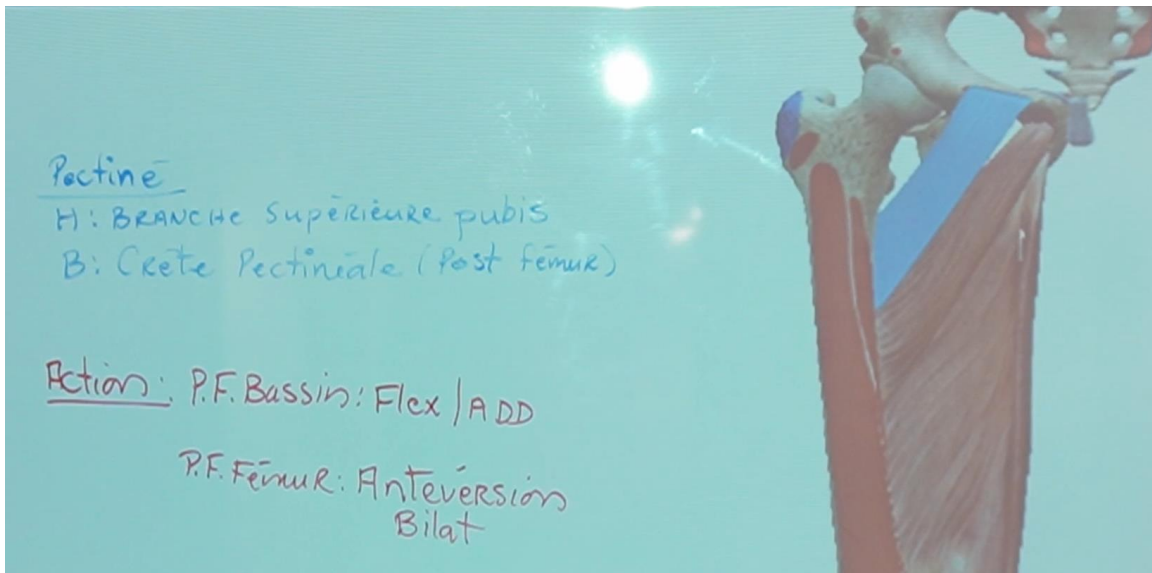 Pectiné
H: BRANCHE Supérieure pubis
B: Crête Pectinéale (Post fémur)
Action: P.F. Bassin: Flex/ADD
P.F. Fémur: Antéversion
Bilat